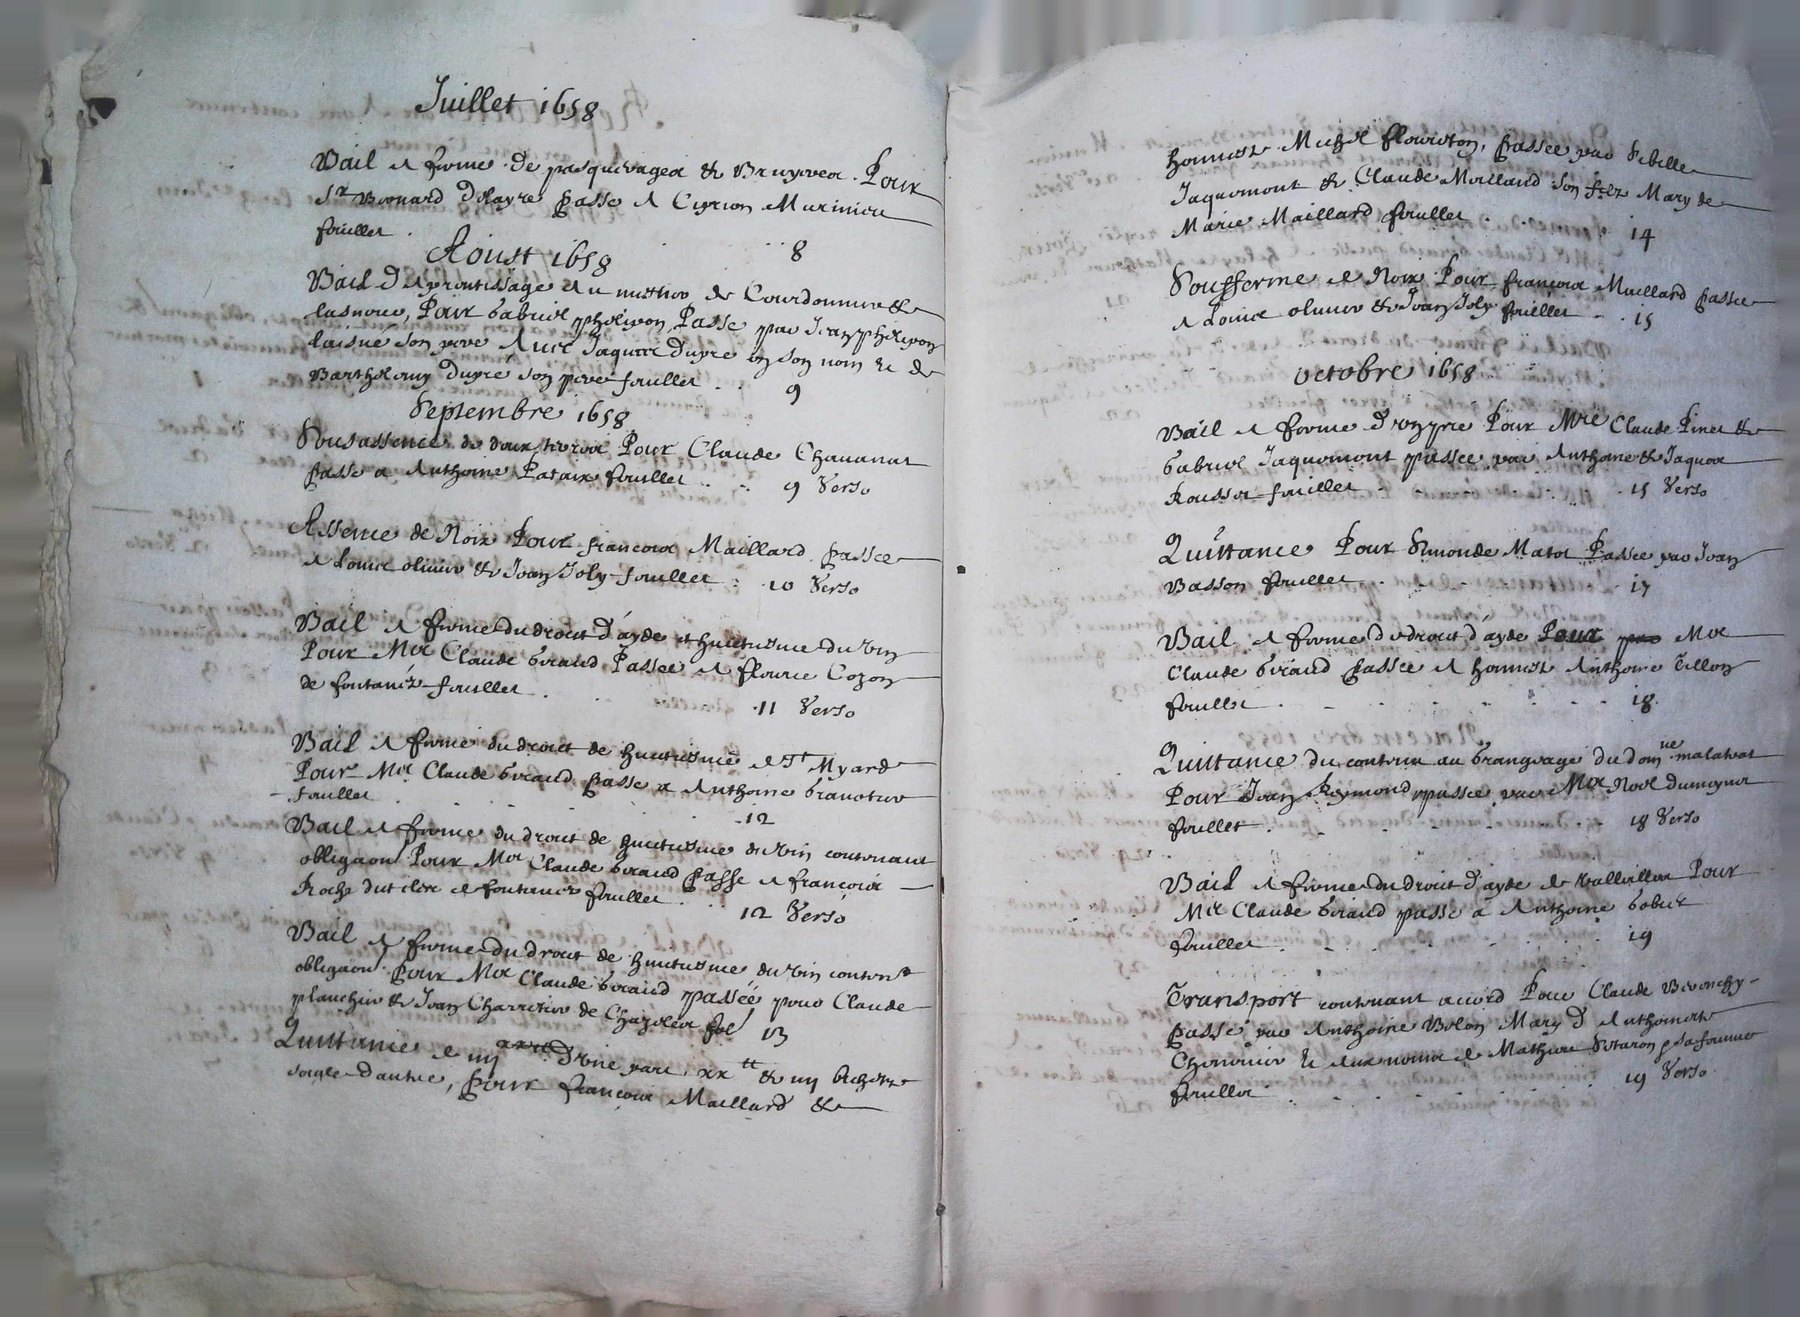 Juillet 1658
Bail a ferme de pasquerages & Bruyeres Pour
Sr Bernard Delayre Passe a Ciprien
feuillet . 8
Aoust 1658
Bail D'aprentissage du mestier de Courdonnier &
Pour Gabriel phelipon Passe par Jean phelipon
laisné son pere Avec Jaques Dupré en son nom & de
Barthelemy dupré son pere feuillet . . 9
Septembre 1658
Sousassence de deux Pour Claude Chavanat
Passe a Anthoine Pataix feuillet . . 9 Verso
Assence de Noix Pour francois Maillard Passee
a Louis olivier & Jean Joly feuillet . 10 Verso
Bail a ferme du droict d'ayde et huictiesme du vin
Pour Mre Claude Giraud Passee a fleurie Cozon
de fontanés feuillet . 11 Verso
Bail a ferme du droict de huictiesme de St Myard
Pour Mre Claude Giraud Passe a Anthoine
feuillet . . . . 12
Bail a ferme du droict de huictiesme du vin contenant
obligaon Pour Mre Claude Giraud Passe a francois
Roche de fontanes feuillet . . 12 Verso
Bail a ferme du droict de huictiesme du vin conten
obligaon Pour Mre Claude Giraud passée pour Claude
planchier & Jean Charretier de Chazelles fol 13
Quittance de iiij d'une part, xx tt & iiij bichets
segle d'autre, pour francois Maillard &
honneste Michel flouriton, passee par Sibille
Jaquemont & Claude Maillard son filz Mary de
Marie Maillard feuillet . 14
Soufferme de Noix Pour francois Maillard Passee
a Louis olivier & Jean Joly feuillet . . 15
octobre 1658
Bail a ferme Pour Mre Claude Pinet &
Gabriel Jaquemont passee par Anthoine & Jaques
Rousset feuillet . . . . 15 Verso
Quittance Pour Simonde Matot Passee par Jean
Basson feuillet . . . . 17
Bail a ferme du droict d'ayde Pour par Mre
Claude Giraud passee a honneste Anthoine Tillon
feuillet . . . . 18
Quittance du contenu au Grangeage du domne malatrat
Pour Jean Reymond passee par Mre Noel dumoyne
feuillet . . . . 18 Verso
Bail a ferme du droict d'ayde de Pour
Mre Claude Giraud passe a Anthoine
feuillet . . . . 19
Transport contenant accord Pour Claude
Passé par Anthoine Bolon Mary d'Anthoinete
& aux noms de Mathieu p sa femme
feuillet . . . . 19 Verso